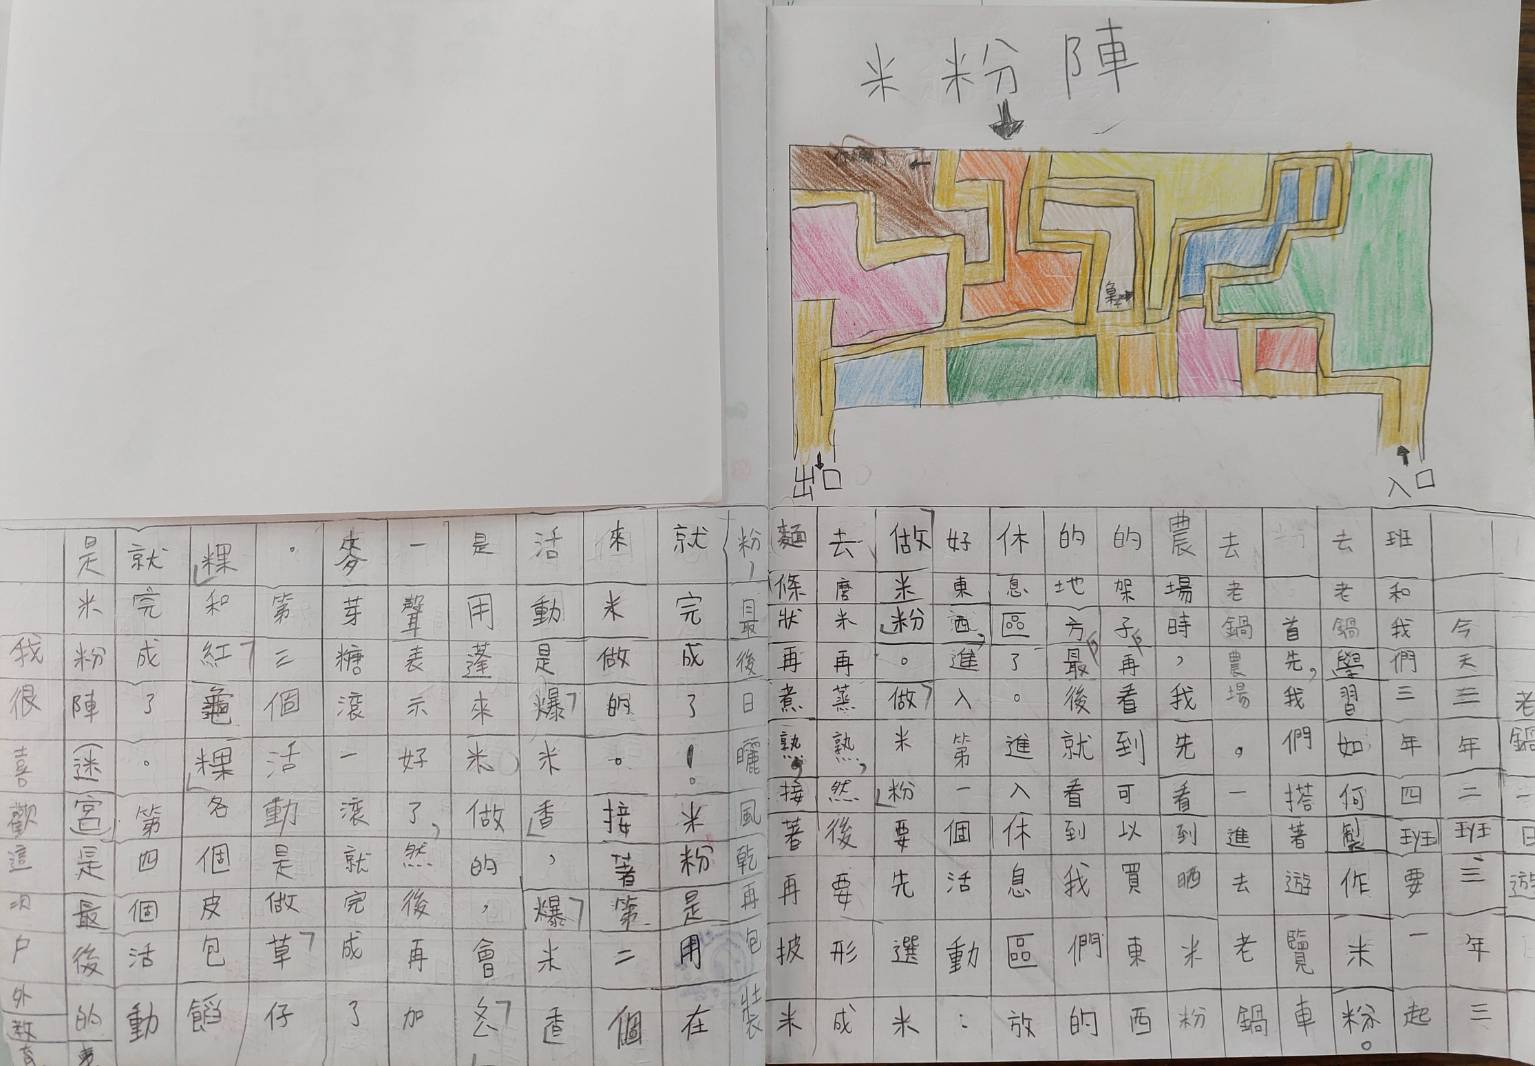 米粉陣
出口
入口
老鍋一日遊
今天三年二班三年三
班和我們三年四班要一起
去老鍋學習如何製作米粉。
首先,我們搭著遊覽車
去老鍋農場,一進去老鍋
農場時,我先看到晒米粉
的架子再看到可以買東西
的地方最後就看到我們的
休息區了。進入休息區放
好東西,進入第一個活動:
做米粉。做米粉要先選米
去磨米再蒸熟,然後要形成
麵條狀再煮熟,接著再披米
粉,最後日曬風乾再包裝
就完成了!米粉是用在
來米做的。接著第二個
活動是爆米香,爆米香
是用蓬來米做的,會
一聲表示好了,然後再加
麥芽糖滾一滾就完成了
。第三個活動是做草仔
粿和紅龜粿各個皮包餡
就完成了。第四個活動
是米粉陣(迷宮)是最後的
我很喜歡這次戶外教育